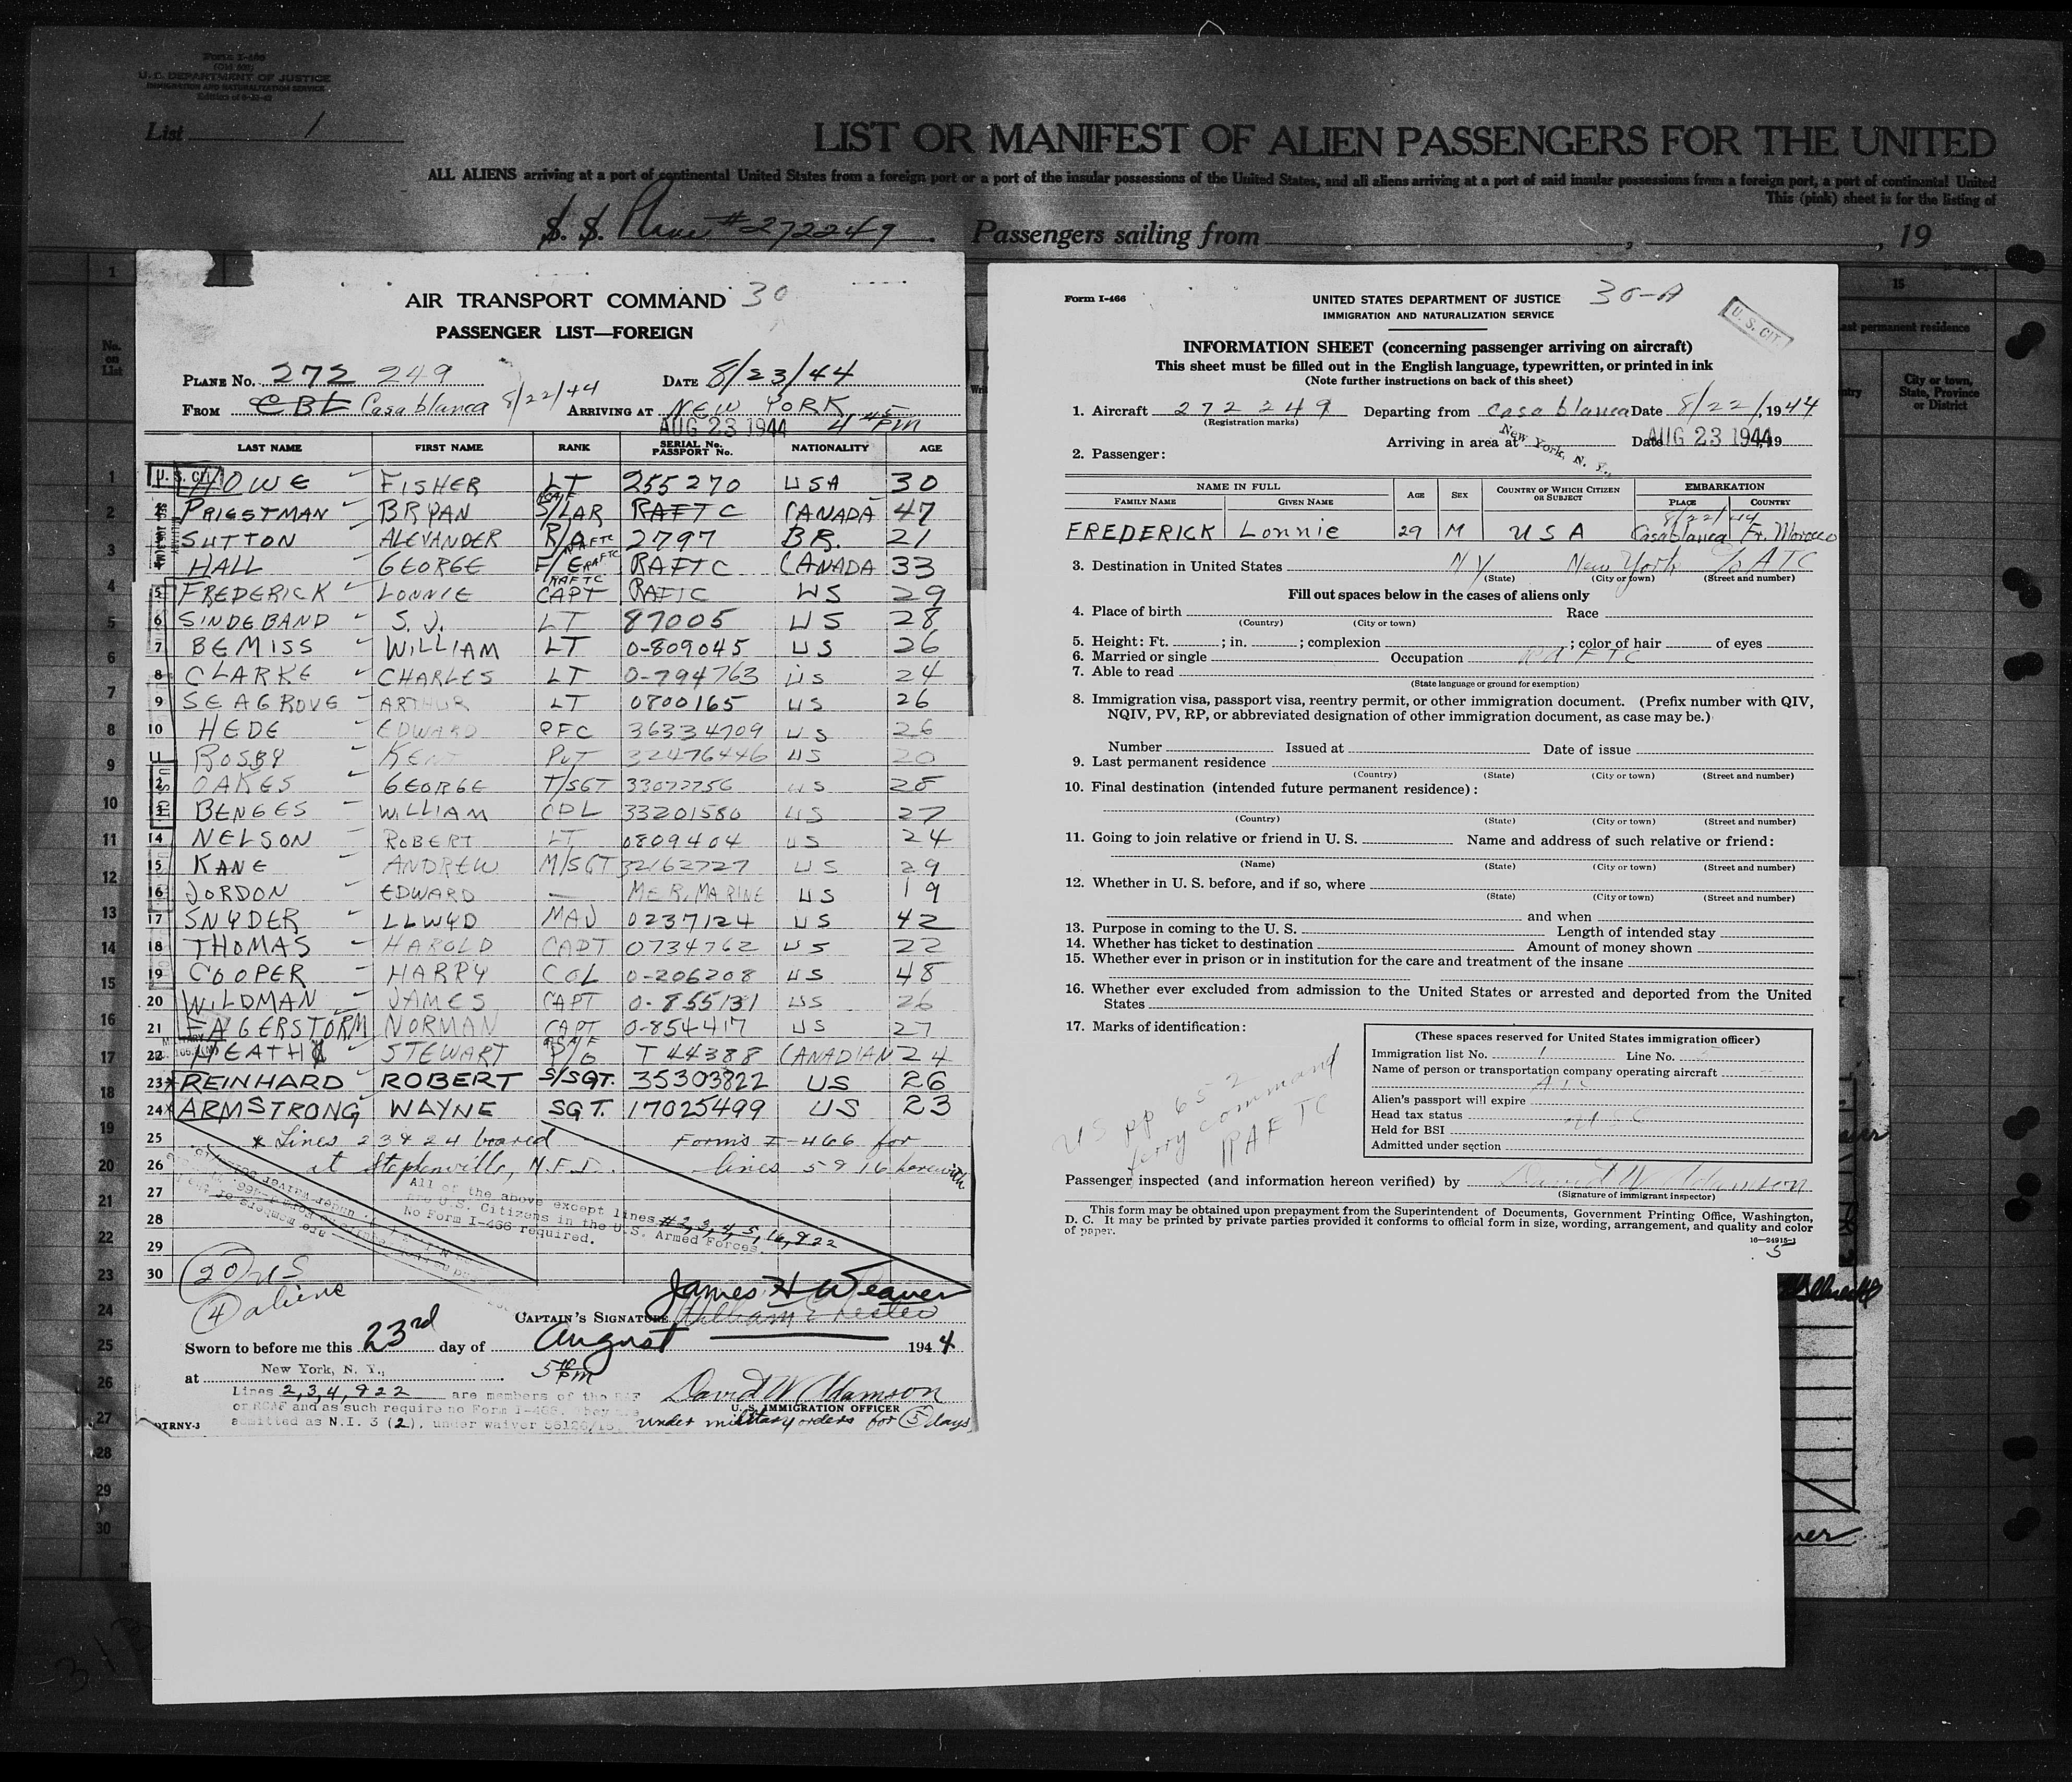 Form I-466
(Old 500)
U. S. DEPARTMENT OF JUSTICE
IMMIGRATION AND NATURALIZATION SERVICE
List 1
LIST OR MANIFEST OF ALIEN PASSENGERS FOR THE UNITED
ALL ALIENS arriving at a port of continental United States from a foreign port or a port of the insular possessions of the United States, and all aliens arriving at a port of said insular possessions from a foreign port, a port of continental United
This (pink) sheet is for the listing of
S. S. Plane # 272249. Passengers sailing from , , 19
AIR TRANSPORT COMMAND 30
PASSENGER LIST—FOREIGN
PLANE NO. 272 249 DATE 8/23/44
FROM CBL Casablanca 8/22/44 ARRIVING AT NEW YORK
AUG 23 1944 4 45 PM
LAST NAME FIRST NAME RANK SERIAL No. PASSPORT No. NATIONALITY AGE
1 HOWE FISHER LT 255270 USA 30
2 PRIESTMAN BRYAN S/LAR RAFTC CANADA 47
3 SUTTON ALEXANDER R/O RAFTC 2797 BR. 21
4 HALL GEORGE F/E RAFTC RAFTC CANADA 33
5 FREDERICK LONNIE RAFTC CAPT RAFTC US 29
6 SINDEBAND S. J. LT 87005 US 28
7 BEMISS WILLIAM LT 0-809045 US 26
8 CLARKE CHARLES LT 0-794763 US 24
9 SEAGROVE ARTHUR LT 0800165 US 26
10 HEDE EDWARD PFC 36334709 US 26
11 ROSBY KENT PVT 32476446 US 20
12 OAKES GEORGE T/SGT 33072256 US 28
13 BENGES WILLIAM CPL 33201580 US 27
14 NELSON ROBERT LT 0809404 US 24
15 KANE ANDREW M/SGT 32162727 US 29
16 JORDON EDWARD — MER. MARINE US 19
17 SNYDER LLWYD MAJ 0237124 US 42
18 THOMAS HAROLD CAPT 0734762 US 22
19 COOPER HARRY COL 0-206208 US 48
20 WILDMAN JAMES CAPT 0-855131 US 26
21 FAGERSTORM NORMAN CAPT 0-854417 US 27
22 HEATH STEWART P/O T 44388 CANADIAN 24
23* REINHARD ROBERT S/SGT. 35303822 US 26
24* ARMSTRONG WAYNE SGT. 17025499 US 23
25 * Lines 23 & 24 boared Forms I-466 for
26 at Stephenville, N.F.L. lines 5 & 16 herewith
27 All of the above except lines # 2, 3, 4, 5, 16, & 22
28 are U.S. Citizens in the U.S. Armed Forces
29 No Form I-466 required.
30 20 US
4 aliens
James H Weaver
CAPTAIN'S SIGNATURE
Sworn to before me this 23rd day of August 1944
at New York, N. Y., 5 PM
Lines 2, 3, 4, & 22 are members of the RAF David W Adamson
or RCAF and as such require no Form I-466. They U. S. IMMIGRATION OFFICER
DTRNY-3 admitted as N.I. 3 (2), under waiver 56126/16 under military orders for 5 days
Form I-466 UNITED STATES DEPARTMENT OF JUSTICE 30-A
IMMIGRATION AND NATURALIZATION SERVICE U. S. CIT.
INFORMATION SHEET (concerning passenger arriving on aircraft)
This sheet must be filled out in the English language, typewritten, or printed in ink
(Note further instructions on back of this sheet)
1. Aircraft 272 249 Departing from Casablanca Date 8/22/, 1944
(Registration marks)
Arriving in area at New York, N. Y., Date AUG 23 1944, 19
2. Passenger:
NAME IN FULL AGE SEX COUNTRY OF WHICH CITIZEN OR SUBJECT EMBARKATION
FAMILY NAME GIVEN NAME PLACE COUNTRY
8/22/44
FREDERICK Lonnie 29 M USA Casablanca Fr. Morocco
3. Destination in United States NY New York % ATC
(State) (City or town) (Street and number)
Fill out spaces below in the cases of aliens only
4. Place of birth Race
(Country) (City or town)
5. Height: Ft. ; in. ; complexion ; color of hair of eyes
6. Married or single Occupation RAFTC
7. Able to read
(State language or ground for exemption)
8. Immigration visa, passport visa, reentry permit, or other immigration document. (Prefix number with QIV,
NQIV, PV, RP, or abbreviated designation of other immigration document, as case may be.)
Number Issued at Date of issue
9. Last permanent residence
(Country) (State) (City or town) (Street and number)
10. Final destination (intended future permanent residence):
(Country) (State) (City or town) (Street and number)
11. Going to join relative or friend in U. S. Name and address of such relative or friend:
(Name) (State) (City or town) (Street and number)
12. Whether in U. S. before, and if so, where
(State) (City or town) (Street and number)
and when
13. Purpose in coming to the U. S. Length of intended stay
14. Whether has ticket to destination Amount of money shown
15. Whether ever in prison or in institution for the care and treatment of the insane
16. Whether ever excluded from admission to the United States or arrested and deported from the United
States
17. Marks of identification:
US PP 652
ferry command
RAFTC
(These spaces reserved for United States immigration officer)
Immigration list No. 1 Line No. 5
Name of person or transportation company operating aircraft
ATC
Alien's passport will expire
Head tax status USC
Held for BSI
Admitted under section
Passenger inspected (and information hereon verified) by David W Adamson
(Signature of immigrant inspector)
This form may be obtained upon prepayment from the Superintendent of Documents, Government Printing Office, Washington,
D. C. It may be printed by private parties provided it conforms to official form in size, wording, arrangement, and quality and color
of paper.
16—24915-1
5
15
last permanent residence
City or town, State, Province or District
No. on List
1
2
3
4
5
6
7
8
9
10
11
12
13
14
15
16
17
18
19
20
21
22
23
24
25
26
27
28
29
30